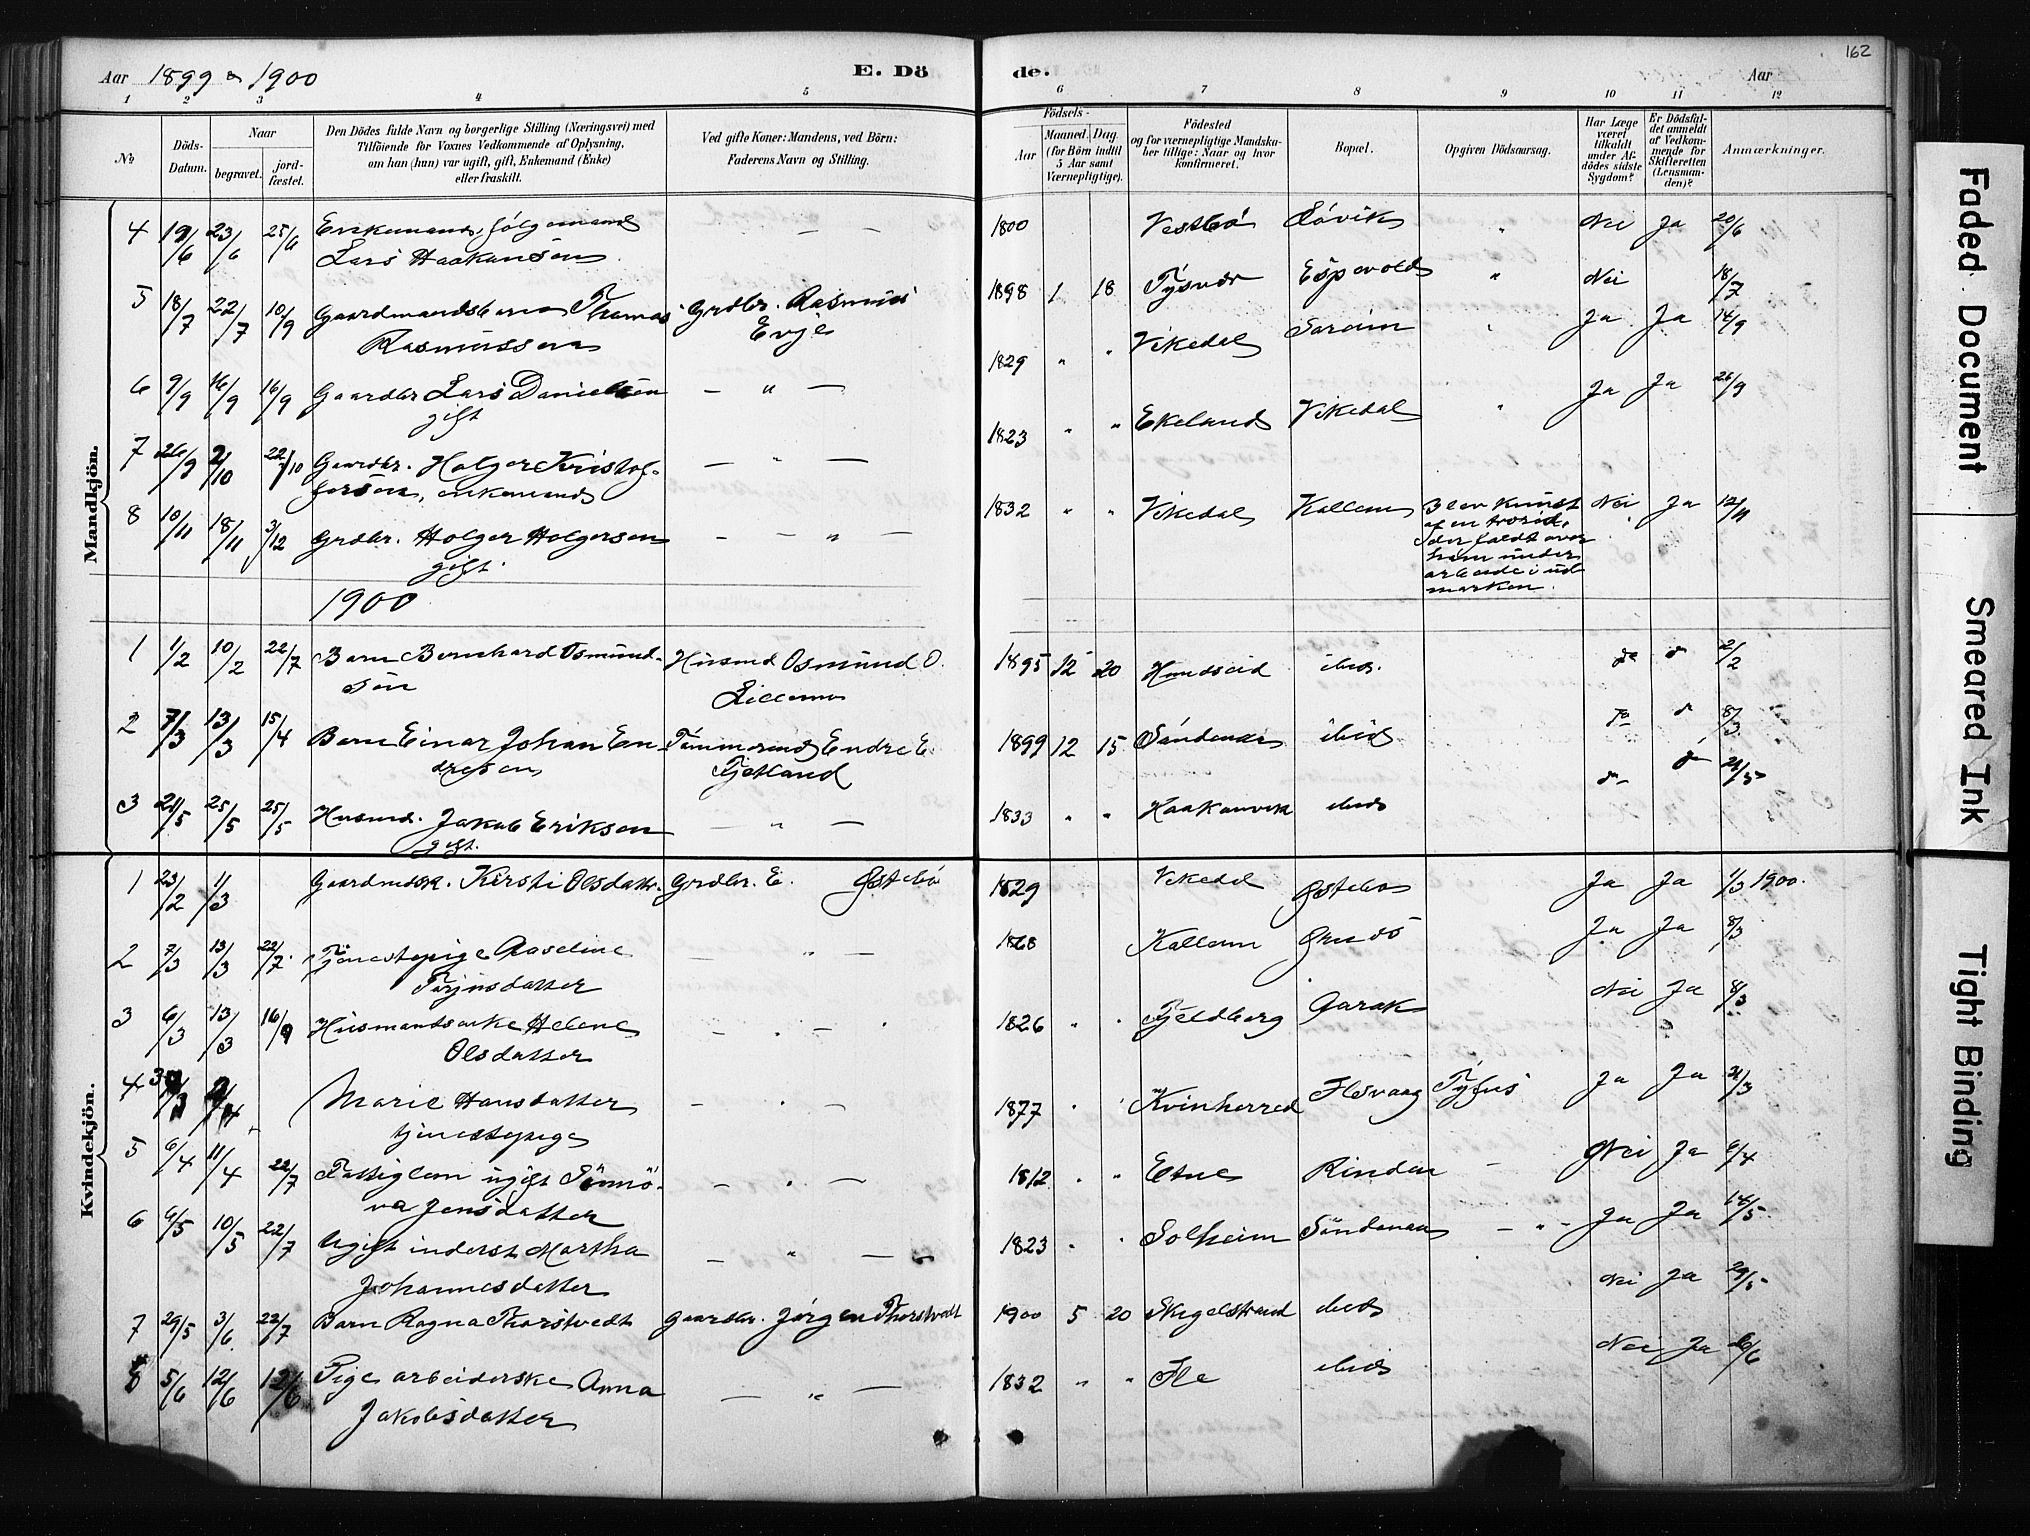 Aar 1899 & 1900
E. Dö
de.
Aar
162
1 2 3 4 5 6 7 8 9 10 11 12
No
Döds-Datum.
Naar
begravet.
jord-fæstet.
Den Dödes fulde Navn og borgerlige Stilling (Næringsvei) med
Tilföiende for Voxnes Vedkommende af Oplysning,
om han (hun) var ugift, gift, Enkemand (Enke)
eller fraskilt.
Ved gifte Koner: Mandens, ved Börn:
Faderens Navn og Stilling.
Födsels-
Aar
Maaned. Dag.
(for Börn indtil
5 Aar samt
Værnepligtige).
Födested
og for værnepligtige Mandska-
ber tillige: Naar og hvor
konfirmeret.
Bopæl.
Opgiven Dödsaarsag.
Har Læge
været
tilkaldt
under Af-
dödes sidste
Sygdom?
Er Dödsfal-
det anmeldt
af Vedkom-
mende for
Skifteretten
(Lensman-
den)?
Anmærkninger.
Mandkjön.
4 19/6 23/6 25/6 Enkemand, følgemand — — 1800 Vestbö Lövik " Nei Ja 20/6
Lars Haakansön
5 18/7 22/7 10/9 Gaardmandsbarn Thomas Grdbr. Rasmus 1898 1 18 Tysvær Espevold " Nei 18/7
Rasmussen Evje
6 9/9 16/9 16/9 Gaardbr Lars Danielsen — " — 1829 " " Vikedal Sareim " Ja Ja 14/9
gift
7 26/9 2/10 22/10 Gaardbr. Holger Kristof- — " — 1823 " " Ekeland Vikedal " Ja Ja 26/9
fersön, enkemand
8 10/11 18/11 3/12 Grdbr. Holger Holgersen — — " — 1832 " " Vikedal Kallem Blev knust Nei Ja 12/11
gift. af en
der faldt over
ham under
arbeide i ud-
marken.
1900
1 1/2 10/2 22/7 Barn Bernhard Osmund- Husmd Osmund O. 1895 12 20 Handseid ibid. 2/2
sön
2 7/3 13/3 15/4 Barn Einar Johan En- Tømmermd Endre E. 1899 12 15 Söndenaa ibid 8/3
dresen Tjetland
3 21/5 25/5 25/5 Husmd. Jakob Eriksen — " — 1833 " " Haakonvik ibid 21/5
gift.
Kvindekjön.
1 23/2 1/3 Gaardmdsk. Kirsti Olsdatter. Grdbr. E. Østebö 1829 Vikedal Østebø Ja Ja 1/3 1900.
2 7/3 13/3 22/7. Tjenestepige Aaseline — " — 1868 Kallem Ja Ja 8/3
Terjusdatter
3 6/3 13/3 16/9 Husmandsenke Helene — . — 1826 " " Fjeldberg Garak Nei Ja 8/3
Olsdatter
4 Marie Hansdatter — . — 1877 " " Kvinherred Ilsvaag Tyfus Ja Ja 31/3
tjenestepige
5 6/4 11/4 22/7 Fattiglem ugift Sünnö- — . — 1812 " " Etne Rindan — Nei Ja 6/4
va Jensdatter
6 6/5 10/5 22/7 Ugift inderst Martha — " — 1823 " " Solheim Söndenaa — " — Ja Ja 18/5
Johannesdatter
7 29/5 3/6. 22/7 Barn Ragna Thorstvedt Gaardbr. Jørgen Thorstvedt 1900 5 20 ibid Nei Ja 29/5
8 5/6 12/6 12/6 Pige arbeiderske Anna — " — 1852 " " Ile ibid Nei Ja 6/6
Jakobsdatter
Faded Document
Smeared Ink
Tight Binding